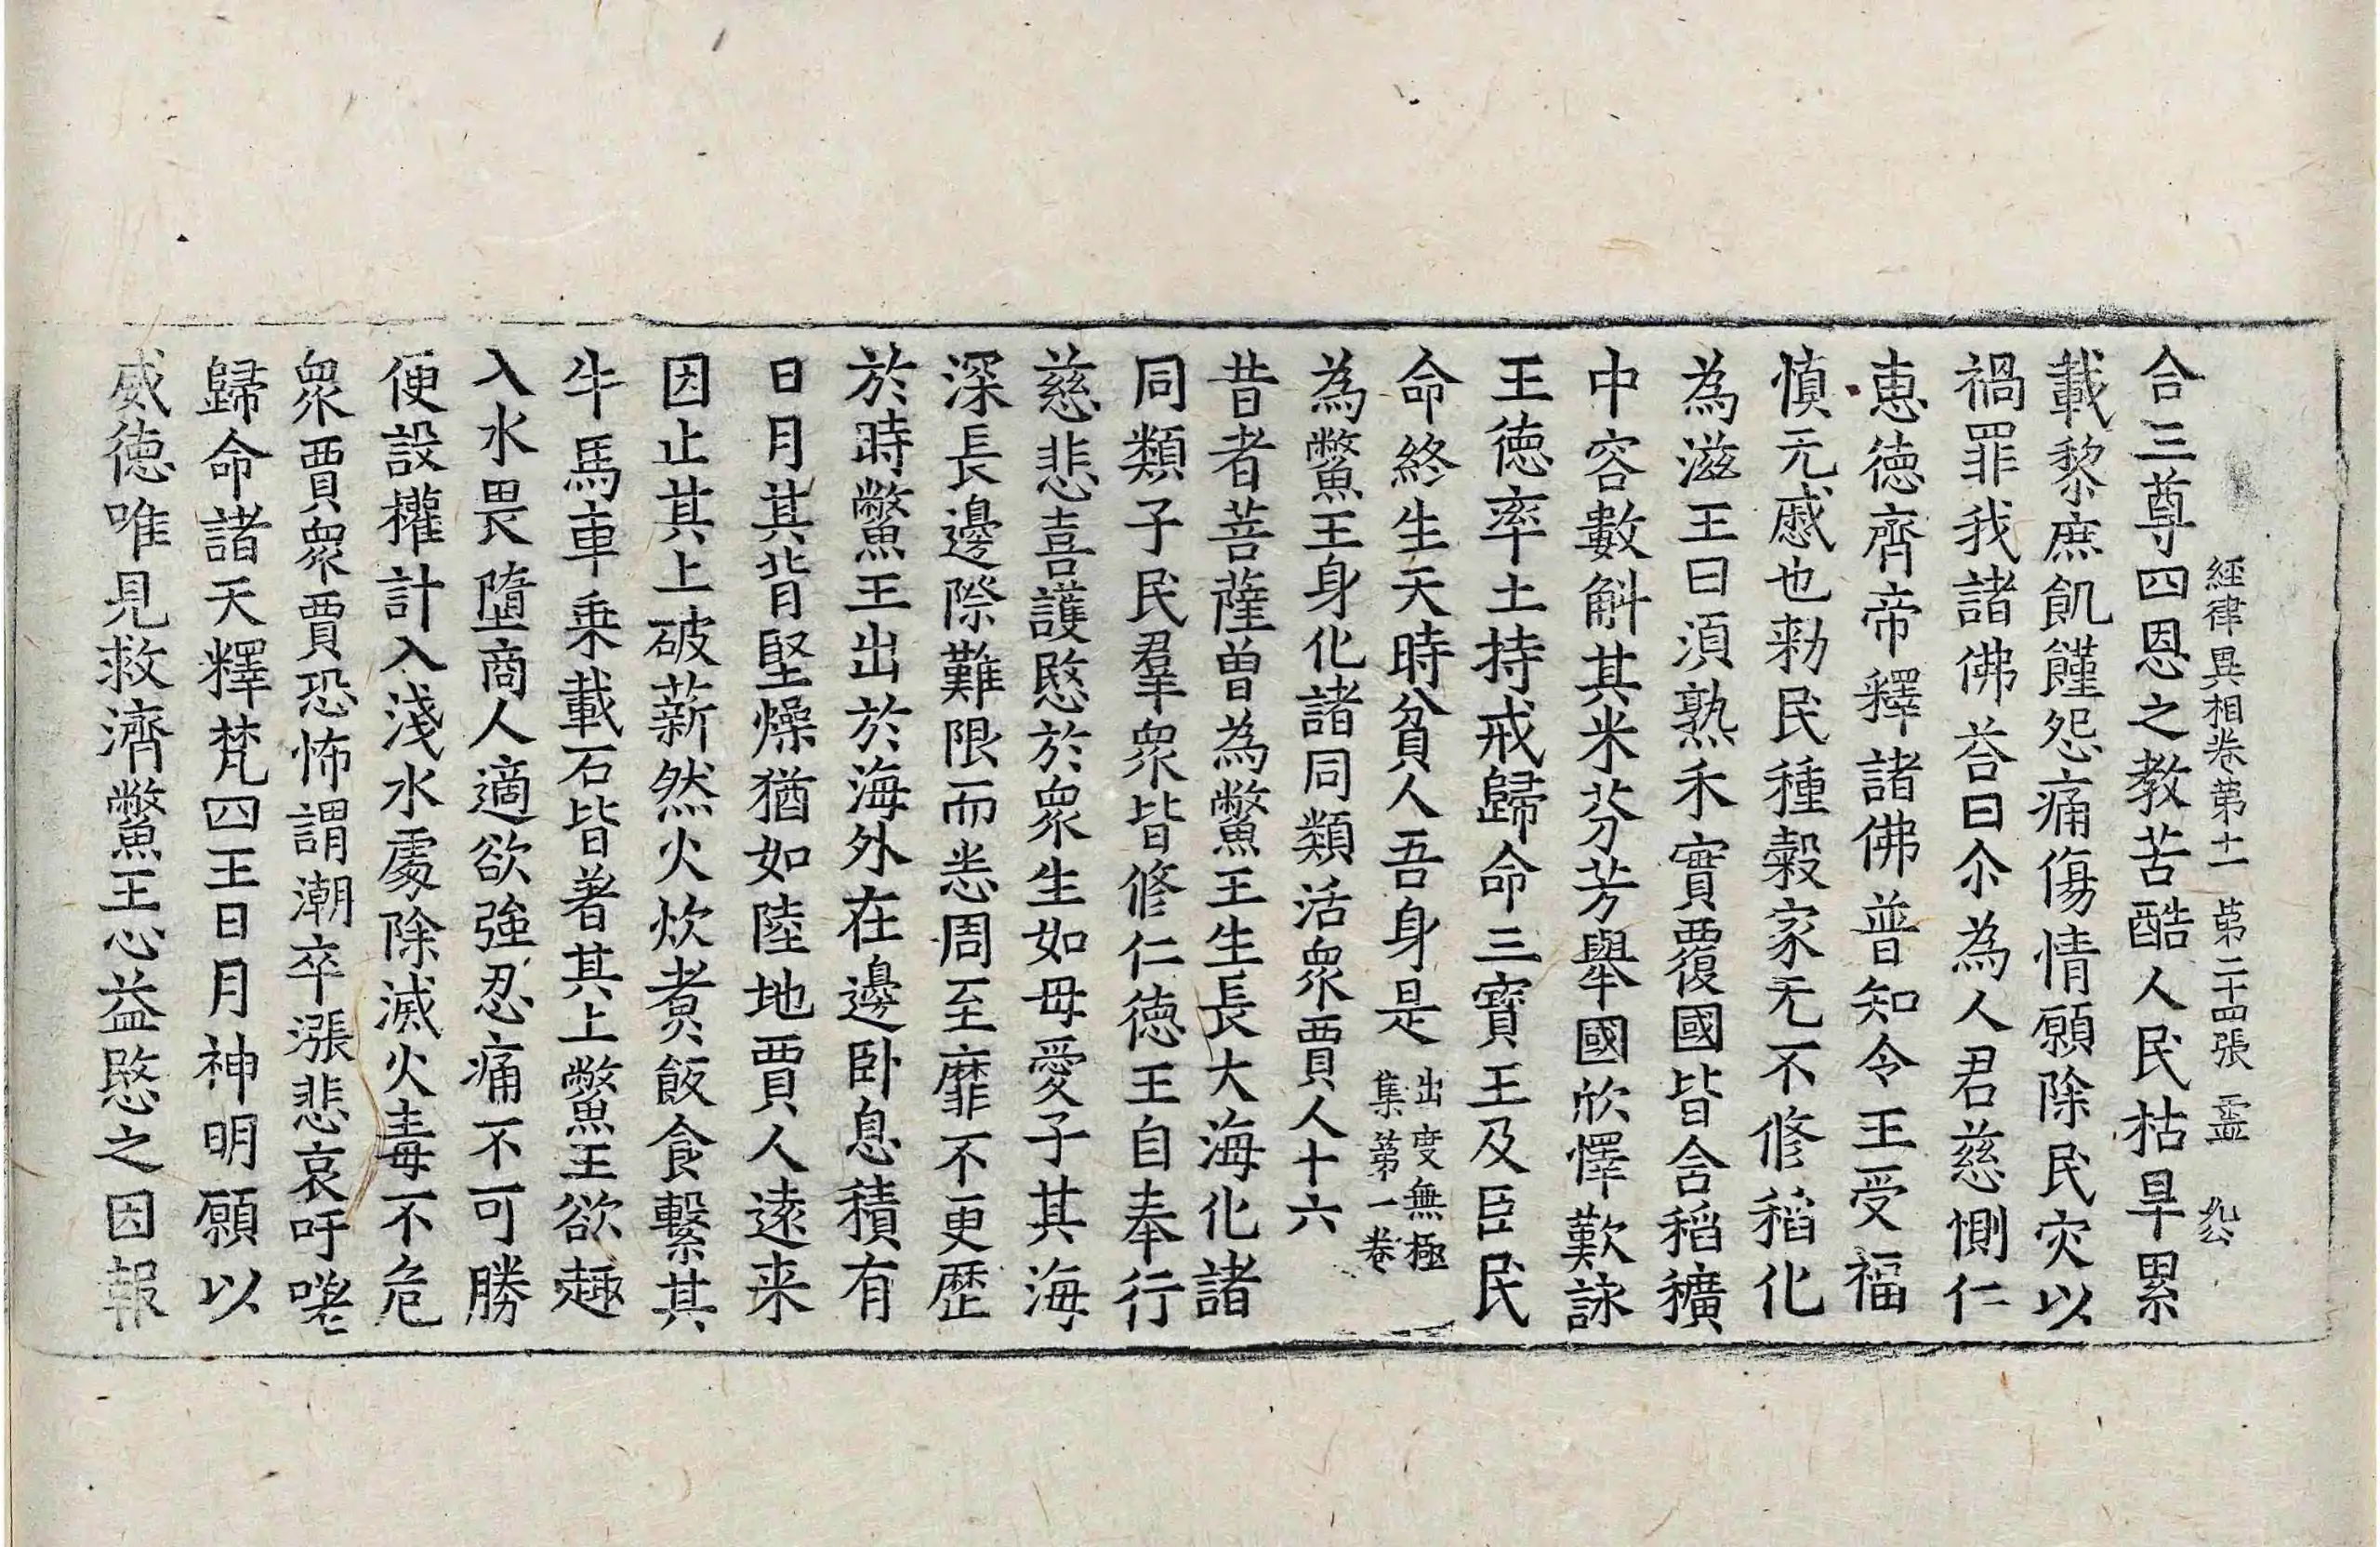 經律異相卷第十一 第二十四張 靈
合三尊四恩之教苦酷人民枯旱累
載黎庶飢饉怨痛傷情願除民灾以
禍罪我諸佛荅曰尒為人君慈惻仁
恵徳齊帝釋諸佛普知今王受福
慎无慼也勑民種穀家无不修稻化
為滋王曰湏熟禾實覆國皆含稻穬
中容數斛其米芬芳舉國欣懌歎詠
王徳率土持戒歸命三寳王及臣民
命終生天時貧人吾身是出度無極
集第一卷
為鱉王身化諸同類活衆賈人十六
昔者菩薩曽為鱉王生長大海化諸
同類子民羣衆皆修仁徳王自奉行
慈悲喜護愍於衆生如母愛子其海
深長邊際難限而悉周至靡不更歴
於時鱉王出於海外在邊卧息積有
日月其背堅燥猶如陸地賈人逺来
因止其上破薪然火炊煑飯食繫其
牛馬車乗載石皆著其上鱉王欲趣
入水畏墮商人適欲強忍痛不可勝
便設權計入淺水處除滅火毒不危
衆賈衆賈恐怖謂潮卒漲悲哀呼嗟
歸命諸天釋梵四王日月神明願以
威徳唯見救濟鱉王心益愍之因報